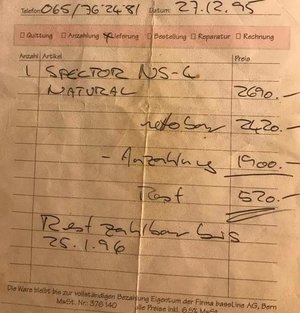 Telefon: 065/762481 Datum: 27.12.95
□ Quittung □ Anzahlung □ Lieferung □ Bestellung □ Reparatur □ Rechnung
Anzahl Artikel Preis
1 SPECTOR NS-4
NATURAL 2690.-
netto bar 2420.-
- Anzahlung 1900.-
Rest 520.-
Rest zahlbar bis
25.1.96
Die Ware bleibt bis zur vollständigen Bezahlung Eigentum der Firma bassLine AG, Bern
MwSt. Nr. 376 140 alle Preise inkl. 6.5% MwSt.